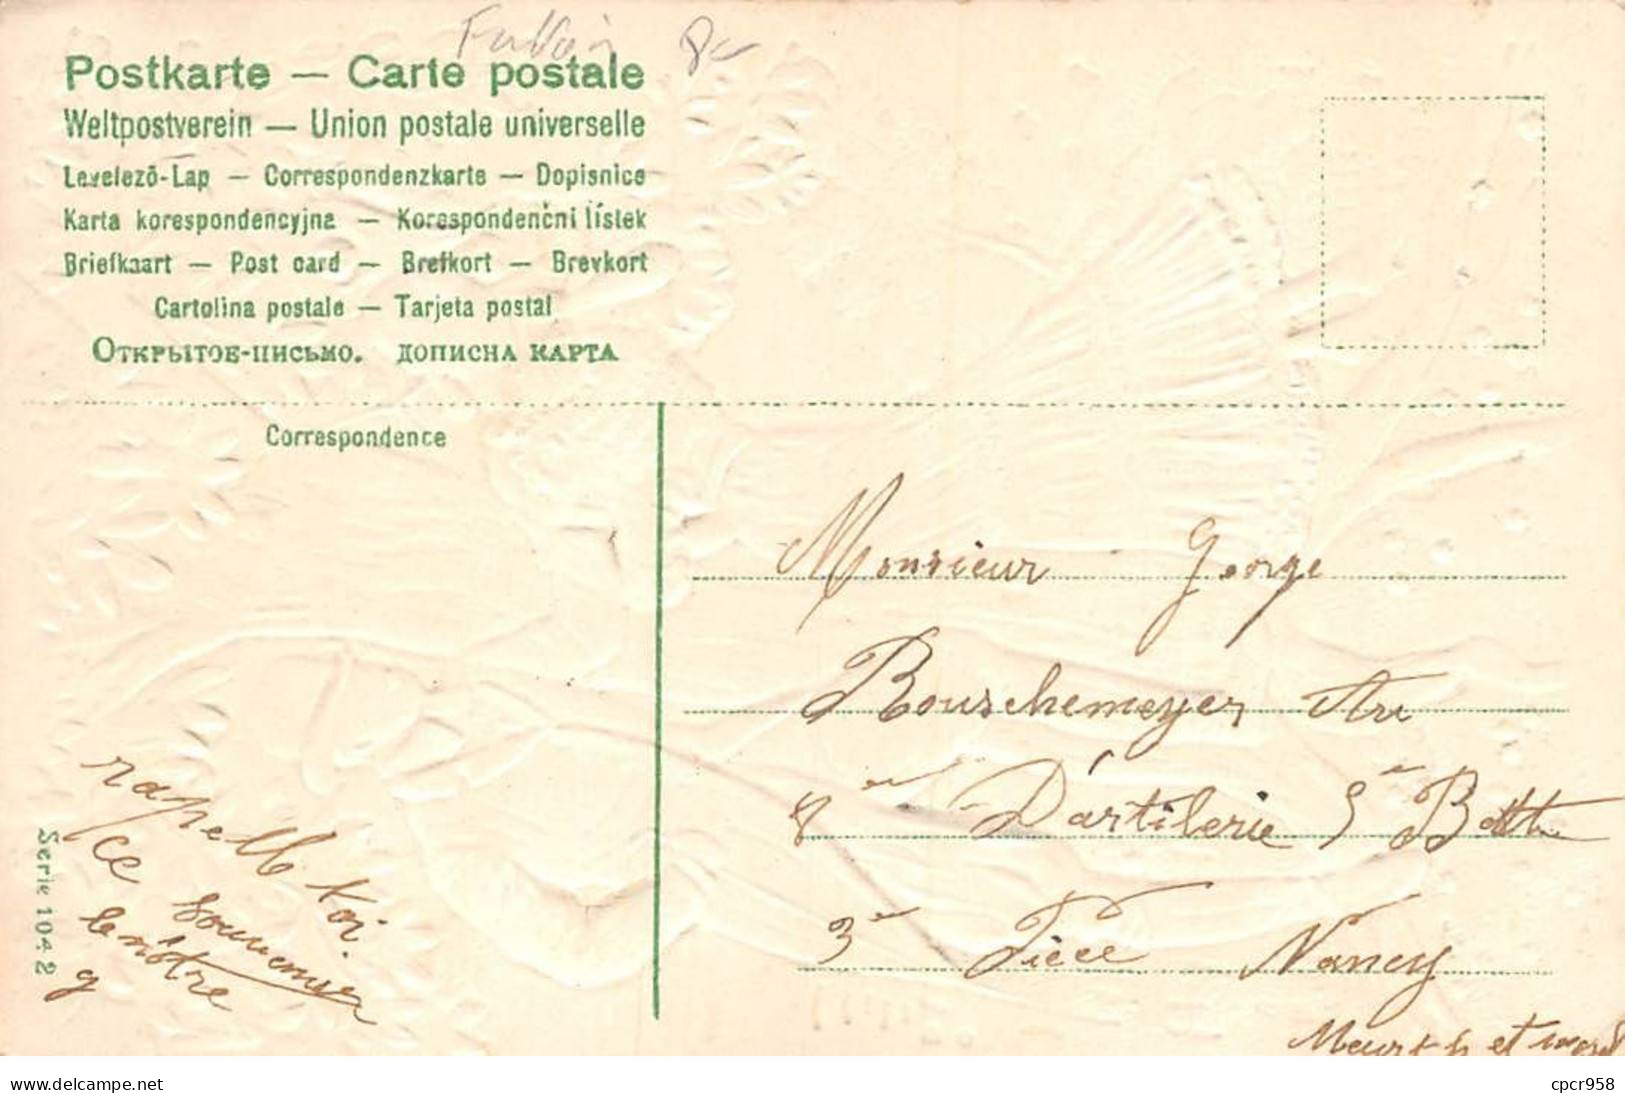 8c
Postkarte — Carte postale
Weltpostverein — Union postale universelle
Levelező-Lap — Correspondenzkarte — Dopisnice
Karta korespondencyjna — Korespondenční lístek
Briefkaart — Post card — Brefkort — Brevkort
Cartolina postale — Tarjeta postal
Открытое-письмо. дописна карта
Correspondence
Monsieur George
Bourschemeyer
8e D'artilerie 5e Batt
3e Pièce Nancy
Meurth et
rapelle toi
ce souvenir
le nôtre
g
Serie 1042
www.delcampe.net
cpcr958